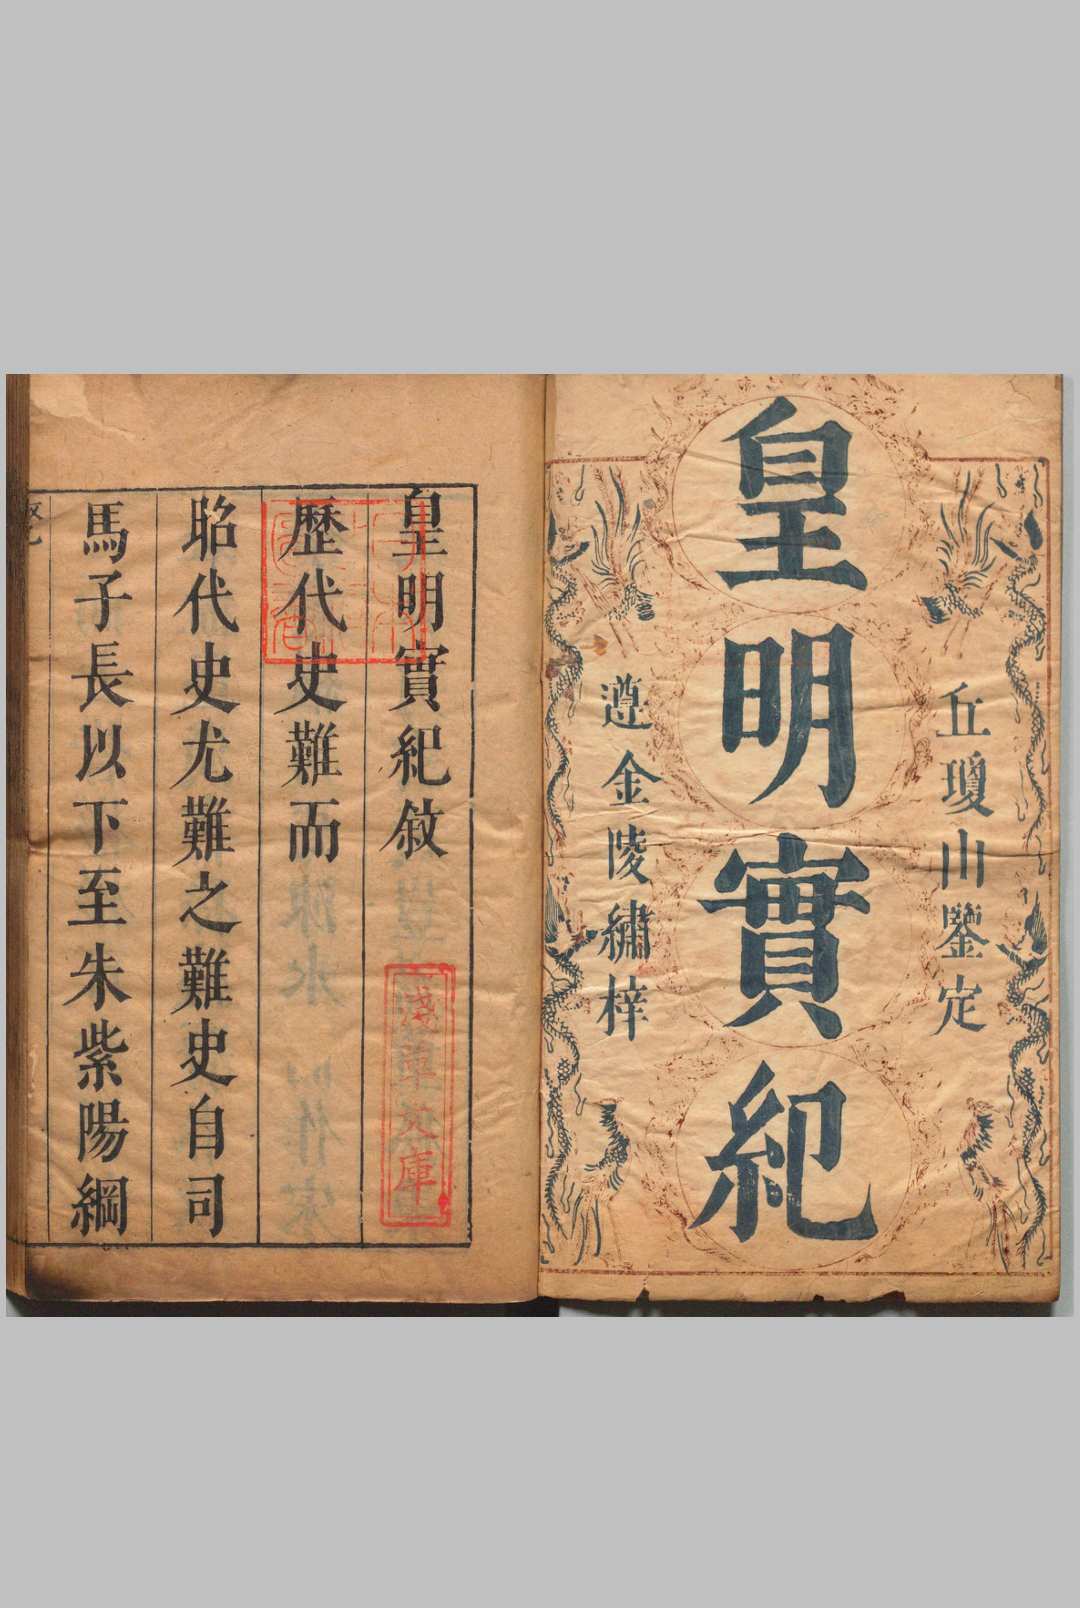 丘瓊山鑒定
皇明實紀
遵金陵繡梓
皇明實紀敘
歷代史難而
昭代史尤難之難史自司
馬子長以下至朱紫陽綱
淺草文庫